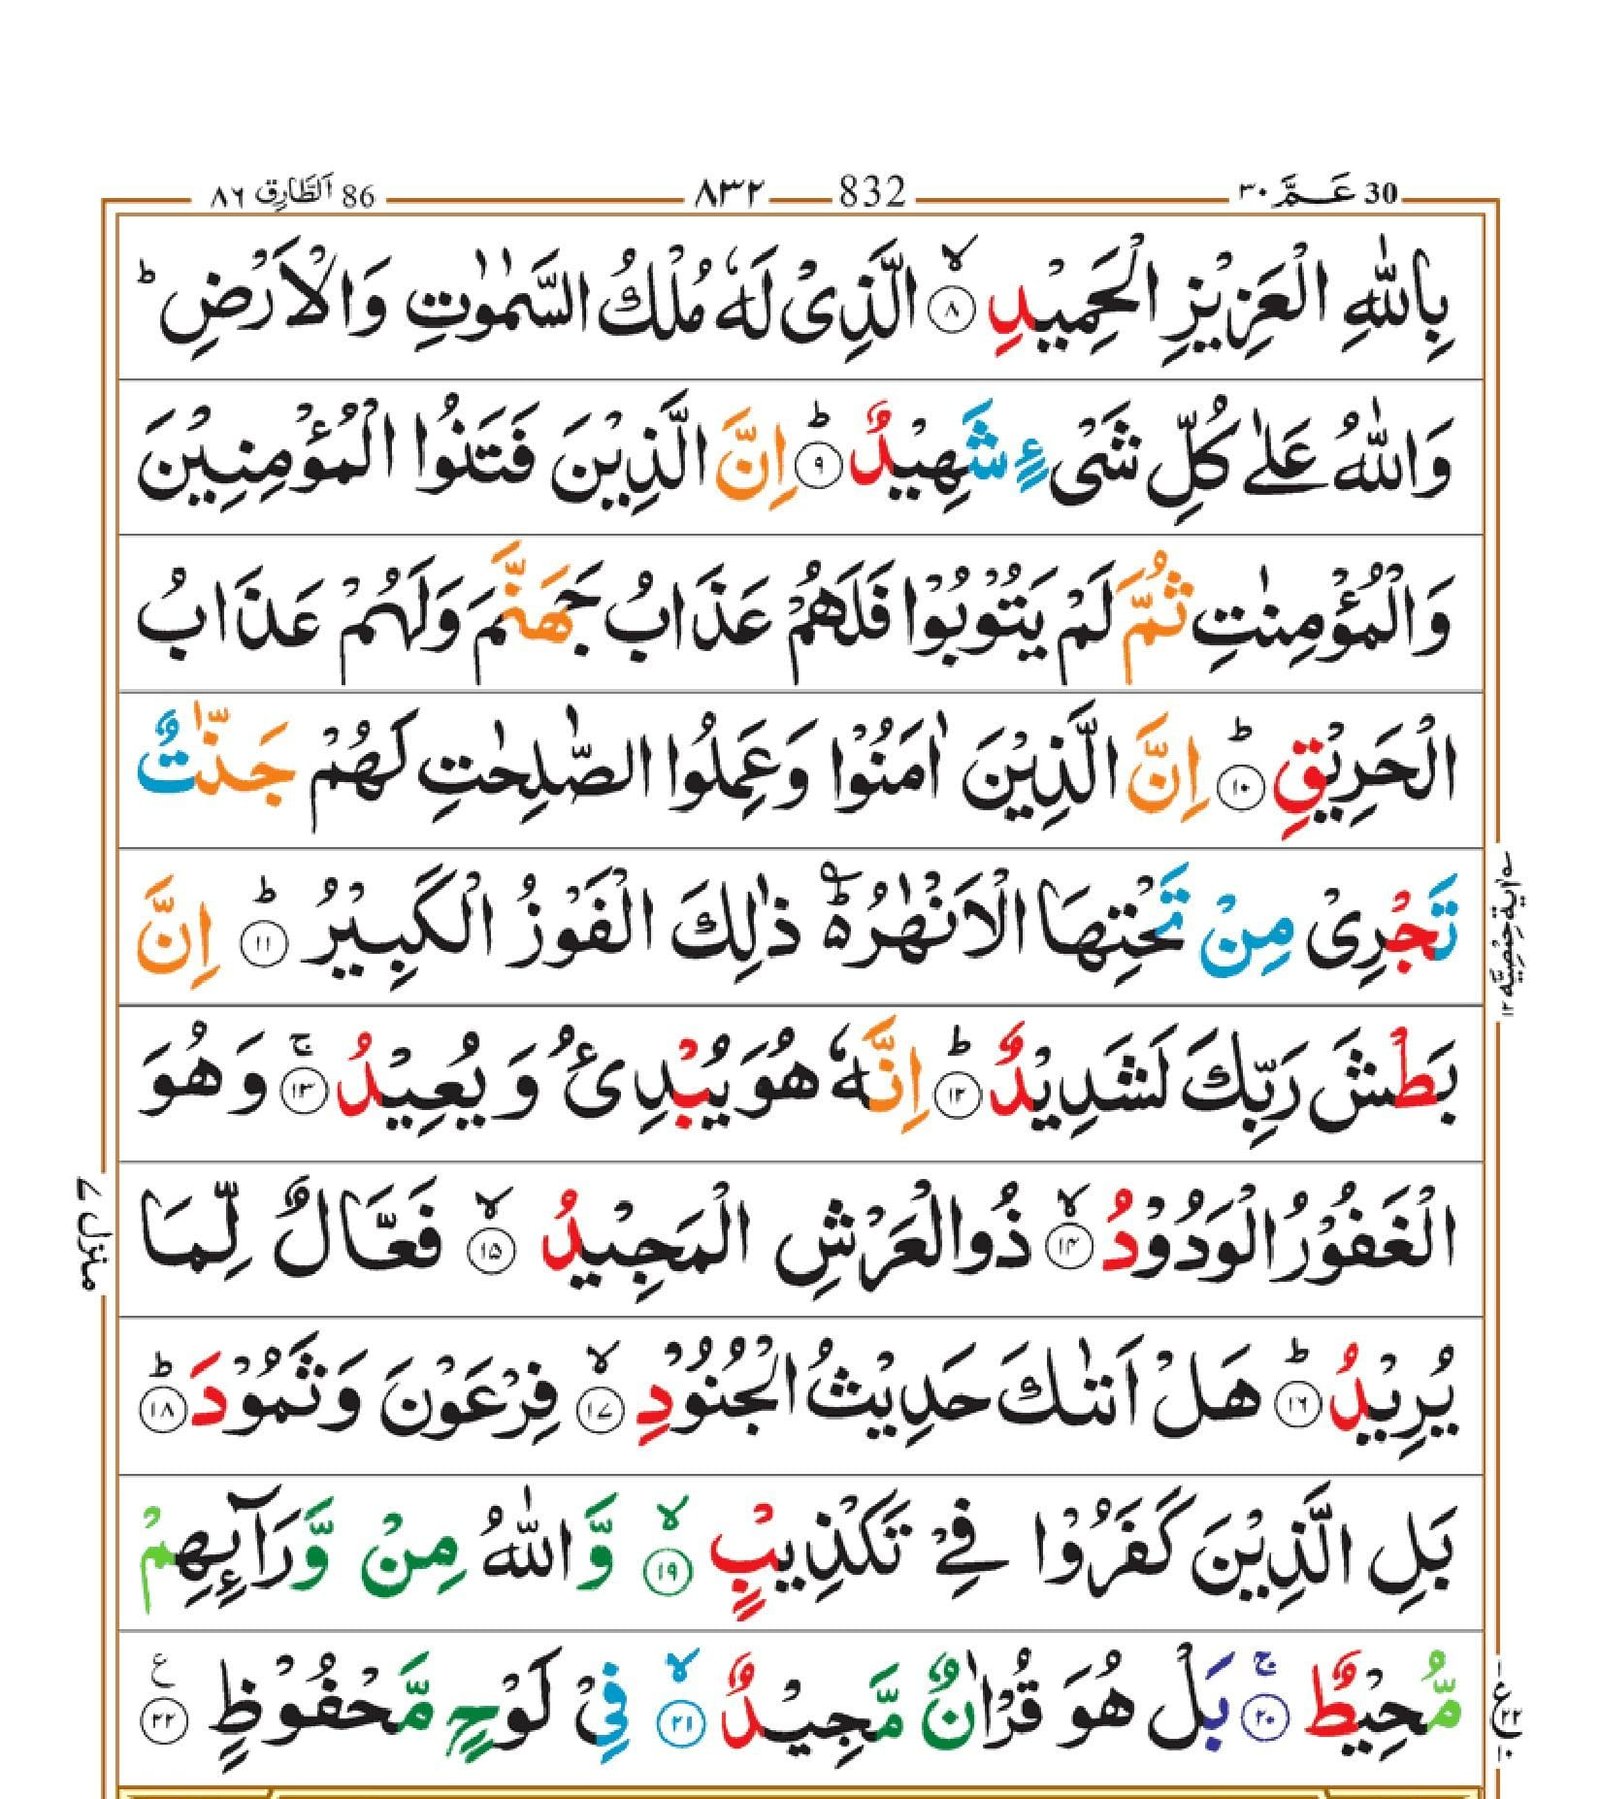 30 عَـمَّ ٣٠ 832 ٨٣٢ 86 اَلطَّارِق ٨٦
بِاللّٰهِ الْعَزِيْزِ الْحَمِيْدِ ۙ‏ ﴿٨﴾ الَّذِىْ لَهٗ مُلْكُ السَّمٰوٰتِ وَالْاَرْضِ ؕ
وَاللّٰهُ عَلٰى كُلِّ شَىْءٍ شَهِيْدٌ ؕ‏ ﴿٩﴾ اِنَّ الَّذِيْنَ فَتَنُوا الْمُؤْمِنِيْنَ
وَالْمُؤْمِنٰتِ ثُمَّ لَمْ يَتُوْبُوْا فَلَهُمْ عَذَابُ جَهَنَّمَ وَلَهُمْ عَذَابُ
الْحَرِيْقِ ؕ‏ ﴿١٠﴾ اِنَّ الَّذِيْنَ اٰمَنُوْا وَعَمِلُوا الصّٰلِحٰتِ لَهُمْ جَنّٰتٌ
تَجْرِىْ مِنْ تَحْتِهَا الْاَنْهٰرُ ۛؕ ذٰلِكَ الْفَوْزُ الْكَبِيْرُ ؕ‏ ﴿١١﴾ اِنَّ
بَطْشَ رَبِّكَ لَشَدِيْدٌ ؕ‏ ﴿١٢﴾ اِنَّهٗ هُوَ يُبْدِئُ وَ يُعِيْدُ ۚ‏ ﴿١٣﴾ وَهُوَ
الْغَفُوْرُ الْوَدُوْدُ ۙ‏ ﴿١٤﴾ ذُو الْعَرْشِ الْمَجِيْدُ ۙ‏ ﴿١٥﴾ فَعَّالٌ لِّمَا
يُرِيْدُ ؕ‏ ﴿١٦﴾ هَلْ اَتٰٮكَ حَدِيْثُ الْجُنُوْدِ ۙ‏ ﴿١٧﴾ فِرْعَوْنَ وَثَمُوْدَ ؕ‏ ﴿١٨﴾
بَلِ الَّذِيْنَ كَفَرُوْا فِىْ تَكْذِيْبٍ ۙ‏ ﴿١٩﴾ وَّاللّٰهُ مِنْ وَّرَآئِهِمْ
مُّحِيْطٌ ۚ‏ ﴿٢٠﴾ بَلْ هُوَ قُرْاٰنٌ مَّجِيْدٌ ۙ‏ ﴿٢١﴾ فِىْ لَوْحٍ مَّحْفُوْظٍ ﴿٢٢﴾ ع
منزل ٧